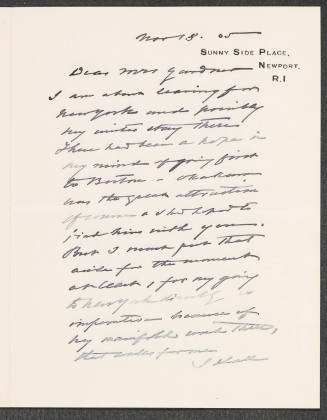 Nov 18. 05
SUNNY SIDE PLACE,
NEWPORT.
R.I
Dear Mrs Gardner
I am about leaving for
New York and possibly
my winter stay there
There had been a hope in
my mind of going first
to Boston — Okakura
was the great attraction
of course & I had hoped to
find him with you.
But I must put that
aside for the moment
at least, for my going
to New York directly is
imperative because of
my manifold work there,
that waits for me
I shall